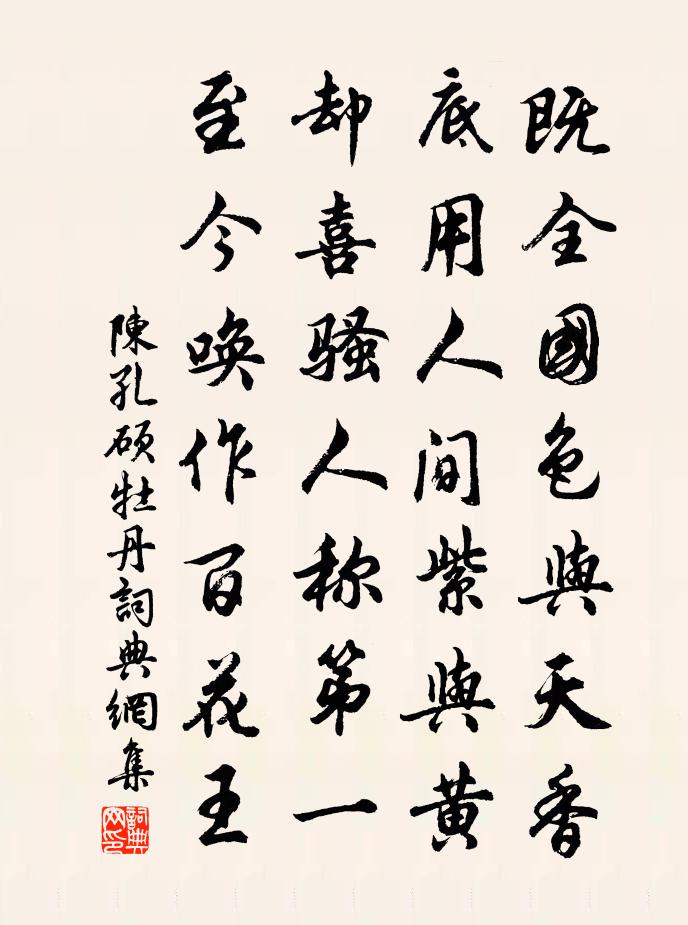 既全國色與天香
底用人间紫與黄
却喜骚人称第一
至今唤作百花王
陳孔硕牡丹詞典網集
詞典網印